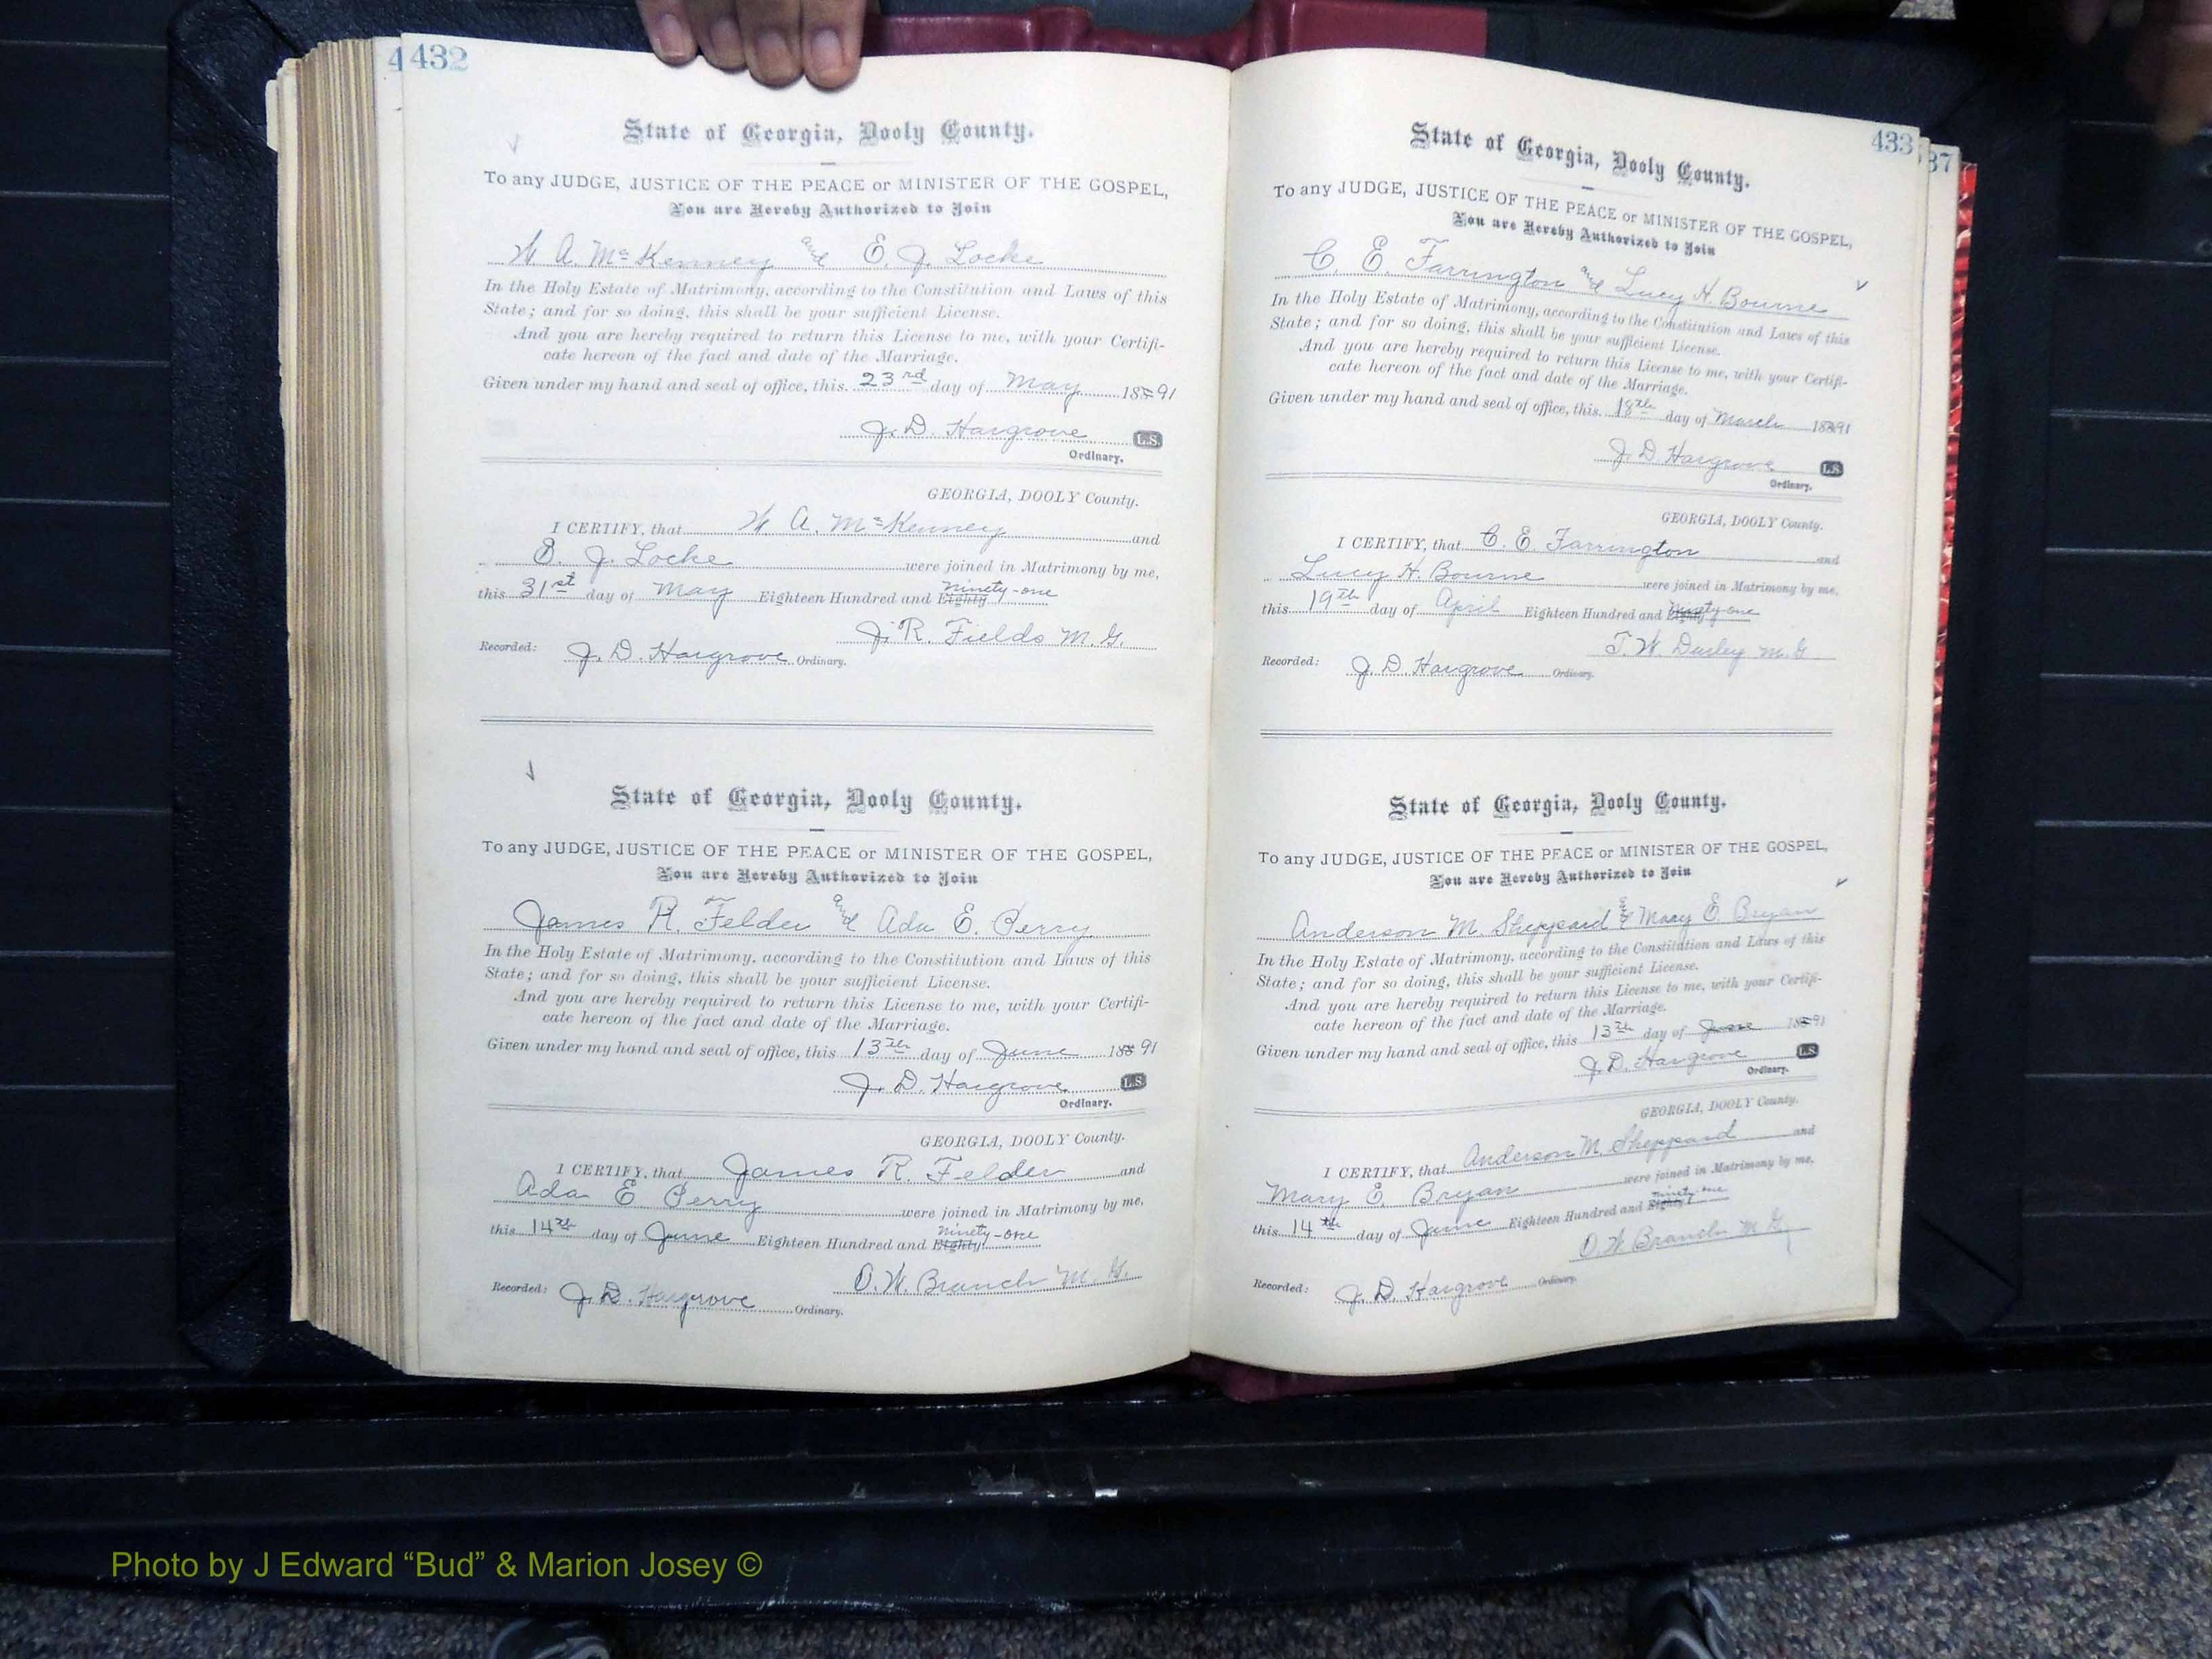 4 432
State of Georgia, Dooly County.
To any JUDGE, JUSTICE OF THE PEACE or MINISTER OF THE GOSPEL,
You are Hereby Authorized to Join
W. A. McKenney and E. J. Locke
In the Holy Estate of Matrimony, according to the Constitution and Laws of this
State; and for so doing, this shall be your sufficient License.
And you are hereby required to return this License to me, with your Certifi-
cate hereon of the fact and date of the Marriage.
Given under my hand and seal of office, this 23rd day of May 1891
J. D. Hargrove L.S.
Ordinary.
GEORGIA, DOOLY County.
I CERTIFY, that W. A. McKenney and
E. J. Locke were joined in Matrimony by me,
this 31st day of May Eighteen Hundred and Eighty Ninety-one
J. R. Fields M. G.
Recorded: J. D. Hargrove Ordinary.
State of Georgia, Dooly County.
To any JUDGE, JUSTICE OF THE PEACE or MINISTER OF THE GOSPEL,
You are Hereby Authorized to Join
James R. Felder and Ada E. Perry
In the Holy Estate of Matrimony, according to the Constitution and Laws of this
State; and for so doing, this shall be your sufficient License.
And you are hereby required to return this License to me, with your Certifi-
cate hereon of the fact and date of the Marriage.
Given under my hand and seal of office, this 13th day of June 1891
J. D. Hargrove L.S.
Ordinary.
GEORGIA, DOOLY County.
I CERTIFY, that James R. Felder and
Ada E. Perry were joined in Matrimony by me,
this 14th day of June Eighteen Hundred and Eighty Ninety-one
O. W. Branch M. G.
Recorded: J. D. Hargrove Ordinary.
433 37
State of Georgia, Dooly County.
To any JUDGE, JUSTICE OF THE PEACE or MINISTER OF THE GOSPEL,
You are Hereby Authorized to Join
C. E. Farrington and Lucy H. Bourne
In the Holy Estate of Matrimony, according to the Constitution and Laws of this
State; and for so doing, this shall be your sufficient License.
And you are hereby required to return this License to me, with your Certifi-
cate hereon of the fact and date of the Marriage.
Given under my hand and seal of office, this 18th day of March 1891
J. D. Hargrove L.S.
Ordinary.
GEORGIA, DOOLY County.
I CERTIFY, that C. E. Farrington and
Lucy H. Bourne were joined in Matrimony by me,
this 19th day of April Eighteen Hundred and Eighty Ninety-one
T. W. M. G
Recorded: J. D. Hargrove Ordinary.
State of Georgia, Dooly County.
To any JUDGE, JUSTICE OF THE PEACE or MINISTER OF THE GOSPEL,
You are Hereby Authorized to Join
Anderson M. Sheppard & Mary E. Bryan
In the Holy Estate of Matrimony, according to the Constitution and Laws of this
State; and for so doing, this shall be your sufficient License.
And you are hereby required to return this License to me, with your Certifi-
cate hereon of the fact and date of the Marriage.
Given under my hand and seal of office, this 13th day of June 1891
J. D. Hargrove L.S.
Ordinary.
GEORGIA, DOOLY County.
I CERTIFY, that Anderson M. Sheppard and
Mary E. Bryan were joined in Matrimony by me,
this 14th day of June Eighteen Hundred and Eighty ninety-one
O. W Branch M. G.
Recorded: J. D. Hargrove Ordinary.
Photo by J Edward “Bud” & Marion Josey ©